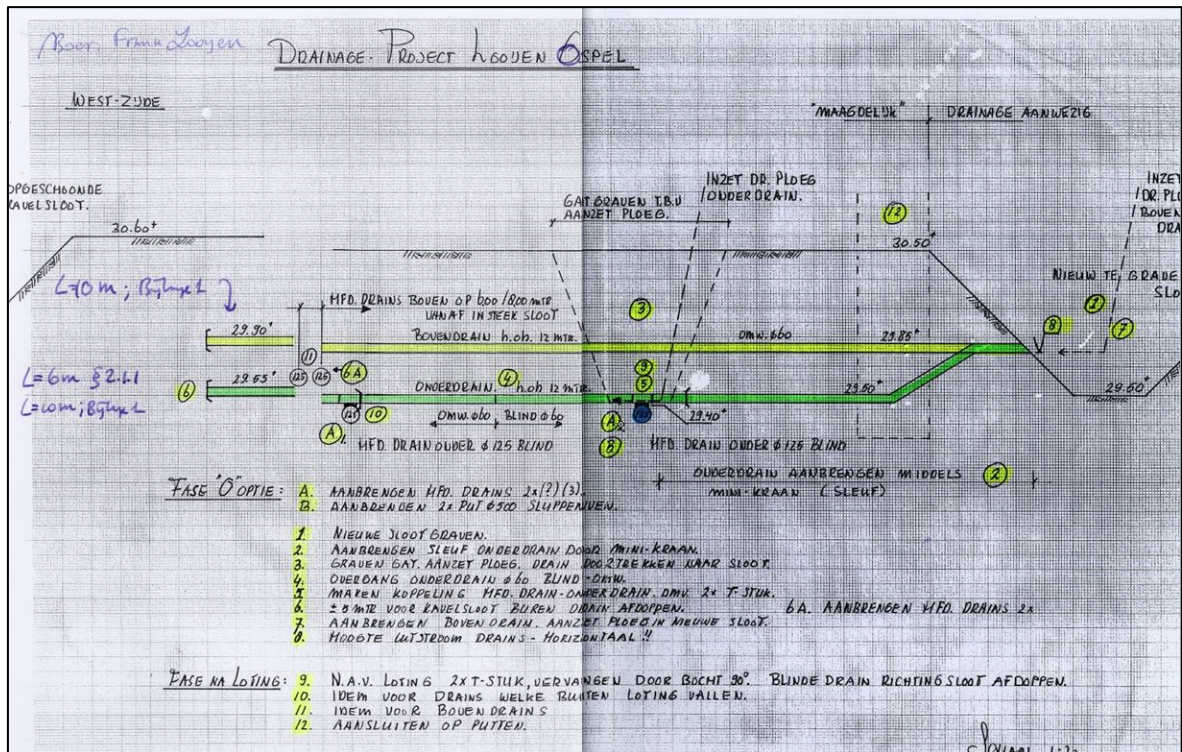 Boer: Frank Looyen
DRAINAGE-PROJECT LOOIJEN OSPEL
WEST-ZIJDE
"MAAGDELIJK"
DRAINAGE AANWEZIG
OPGESCHOONDE
KAVELSLOOT.
30.60+
GAT GRAVEN T.B.V
AANZET PLOEG.
INZET DR. PLOEG
ONDERDRAIN.
12
30.50+
INZET
DR. PLO
BOVEN
DRA
NIEUW TE GRADE
SLO
L=10m; Bijlage 1
MFD. DRAINS BOVEN OP 6.00/8.00 MTR
VANAF INSTEEK SLOOT
3
1
8
7
29.90+
BOVENDRAIN h.oh. 12 MTR.
OMW. ø60
29.85+
11
125
125
6A
9
L=6m § 2.1.1
L=10m; Bijlage 1
6
29.55+
ONDERDRAIN.
4
h.oh. 12 MTR.
5
29.50+
29.50+
125
10
OMW. ø60
BLIND ø60
125
29.40+
A1
A2
B
MFD. DRAIN ONDER ø125 BLIND
MFD. DRAIN ONDER ø125 BLIND
ONDERDRAIN AANBRENGEN MIDDELS
MINI-KRAAN (SLEUF)
2
FASE "0" OPTIE:
A. AANBRENGEN MFD. DRAINS 2x(?)(3).
B. AANBRENGEN 2x PUT ø500
1. NIEUWE SLOOT GRAVEN.
2. AANBRENGEN SLEUF ONDERDRAIN DOOR MINI-KRAAN.
3. GRAVEN GAT. AANZET PLOEG. DRAIN DOORTREKKEN NAAR SLOOT.
4. OVERGANG ONDERDRAIN ø60 BLIND-OMW.
5. MAKEN KOPPELING MFD. DRAIN-ONDERDRAIN. DMV. 2x T-STUK.
6. ± 5 MTR VOOR KAVELSLOOT BUREN DRAIN AFDOPPEN. 6A. AANBRENGEN MFD. DRAINS 2x
7. AANBRENGEN BOVENDRAIN. AANZET PLOEG IN NIEUWE SLOOT.
8. HOOGTE UITSTROOM DRAINS - HORIZONTAAL !!
FASE NA LOTING:
9. N.A.V. LOTING 2x T-STUK, VERVANGEN DOOR BOCHT 90°. BLINDE DRAIN RICHTING SLOOT AFDOPPEN.
10. IDEM VOOR DRAINS WELKE BUITEN LOTING VALLEN.
11. IDEM VOOR BOVENDRAINS
12. AANSLUITEN OP PUTTEN.